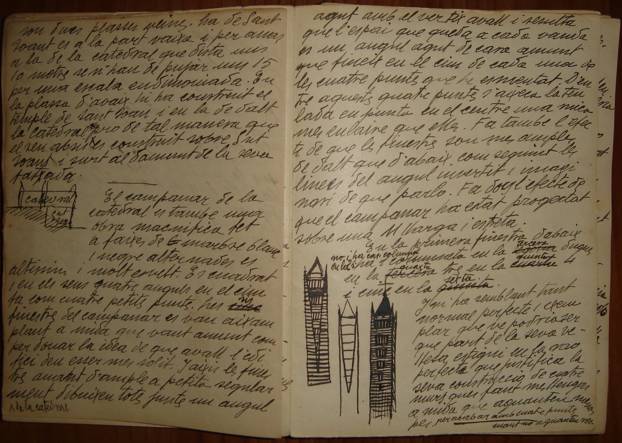 son dues plasses veïnes. la de Sant
Joan es a la part vaixa i per anar
a la de la catedral que dista uns
10 metres se n'han de pujar uns 15
per una escala endimoniada. En
la plassa d'avaix hi ha construit el
temple de Sant Joan i en la de dalt
la catedral pro de tal manera que
el seu absis es construit sobre Sant
Joan i surt al damunt de la seva
fatxada.
catedral
Sat
Joan
El campanar de la
catedral es tambe una
obra magnifica fet
a faixes de marbre blanc
i negre alternades es
altissim i molt esvelt. Es cuadrat
i en els seus quatre anguls en el cim
fa com cuatre petits punts. Les
finestres del campanar es van aixam
plant a mida que vant amunt com
per donar la idea de que avall l'edi
fici deu esser mes solit. Faixi les fines
tres amunt d'ample a petita regular
ment dibuixen tots junts un angul
de la catedral
agut amb el vertix avall i resulta
que l'espai que queda a cada vanda
es un angul agut de cara amunt
que fineix en el cim de cada una de
les cuatre punts que he esmentat. D'en
tre aquets quatre punts s'aixeca la teu
lada en punta en el centre una mica
mes enlaire que elles. Fa tambe l'efec
te de que les finestres son mes amples
de dalt que d'abaix com seguint les
lineas del angul invertit i imagi
nari de que parlo. Fa donçs efecte de
que el campanar ha estat projectat
sobre una M llarga i estreta.
En la primera finestra d'abaix
no hi ha cap columna
en la
i cinc en la sexta
M'ha semblant tant
normal perfecte i exem
plar que no podria ser
que part de la seva be-
llesa estigui en la gran
perfecta que justifica la
seva construcció de cuatre
murs que fant mes lleuger
a mida que aguanten menos
pes per acabar amb cuatre punts